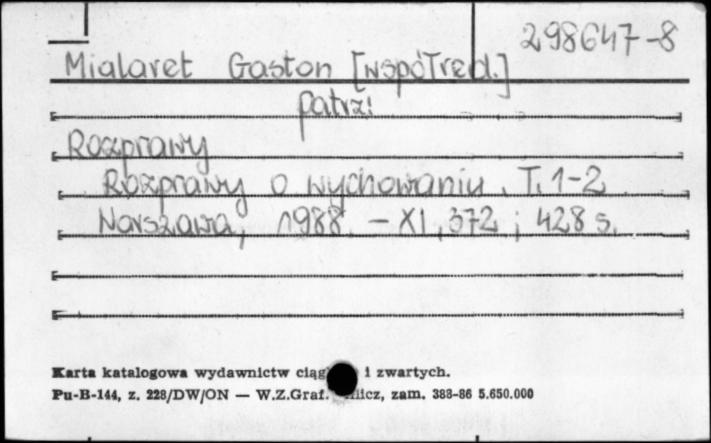 298647-8
Mialaret Gaston [współred.]
patrz:
Rozprawy
Rozprawy o wychowaniu. T. 1-2
Warszawa, 1988. - XI, 372 ; 428 s.
Karta katalogowa wydawnictw ciąg i zwartych.
Pu-B-144, z. 228/DW/ON — W.Z.Graf. zam. 383-86 5.650.000